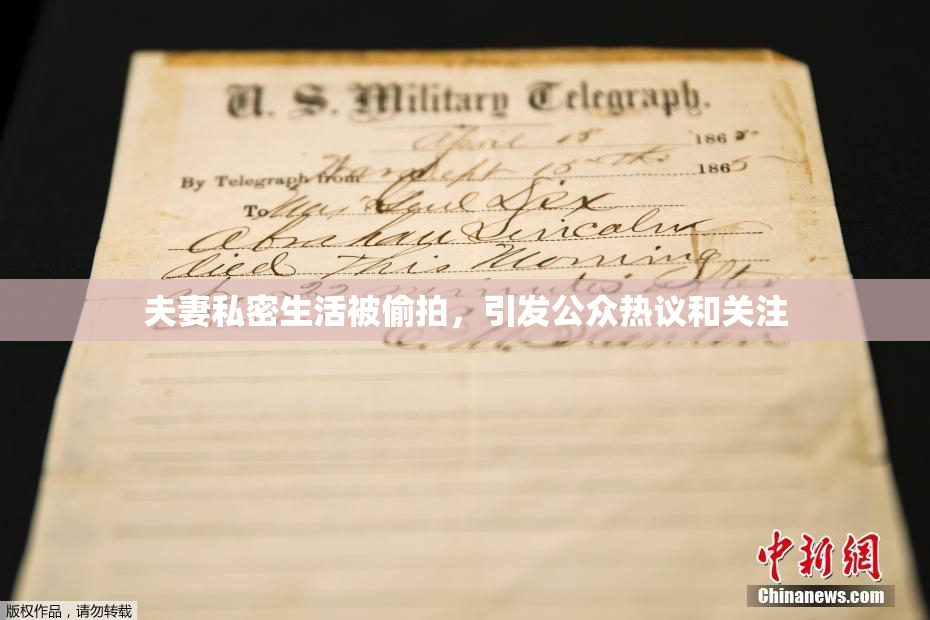 U. S. Military Telegraph.
April 15 1865
By Telegraph from War Dept 15th 1865
To Maj Genl Dix
Abraham Lincoln
died This Morning
at 22 minutes after
夫妻私密生活被偷拍，引发公众热议和关注
中新网
Chinanews.com
版权作品，请勿转载